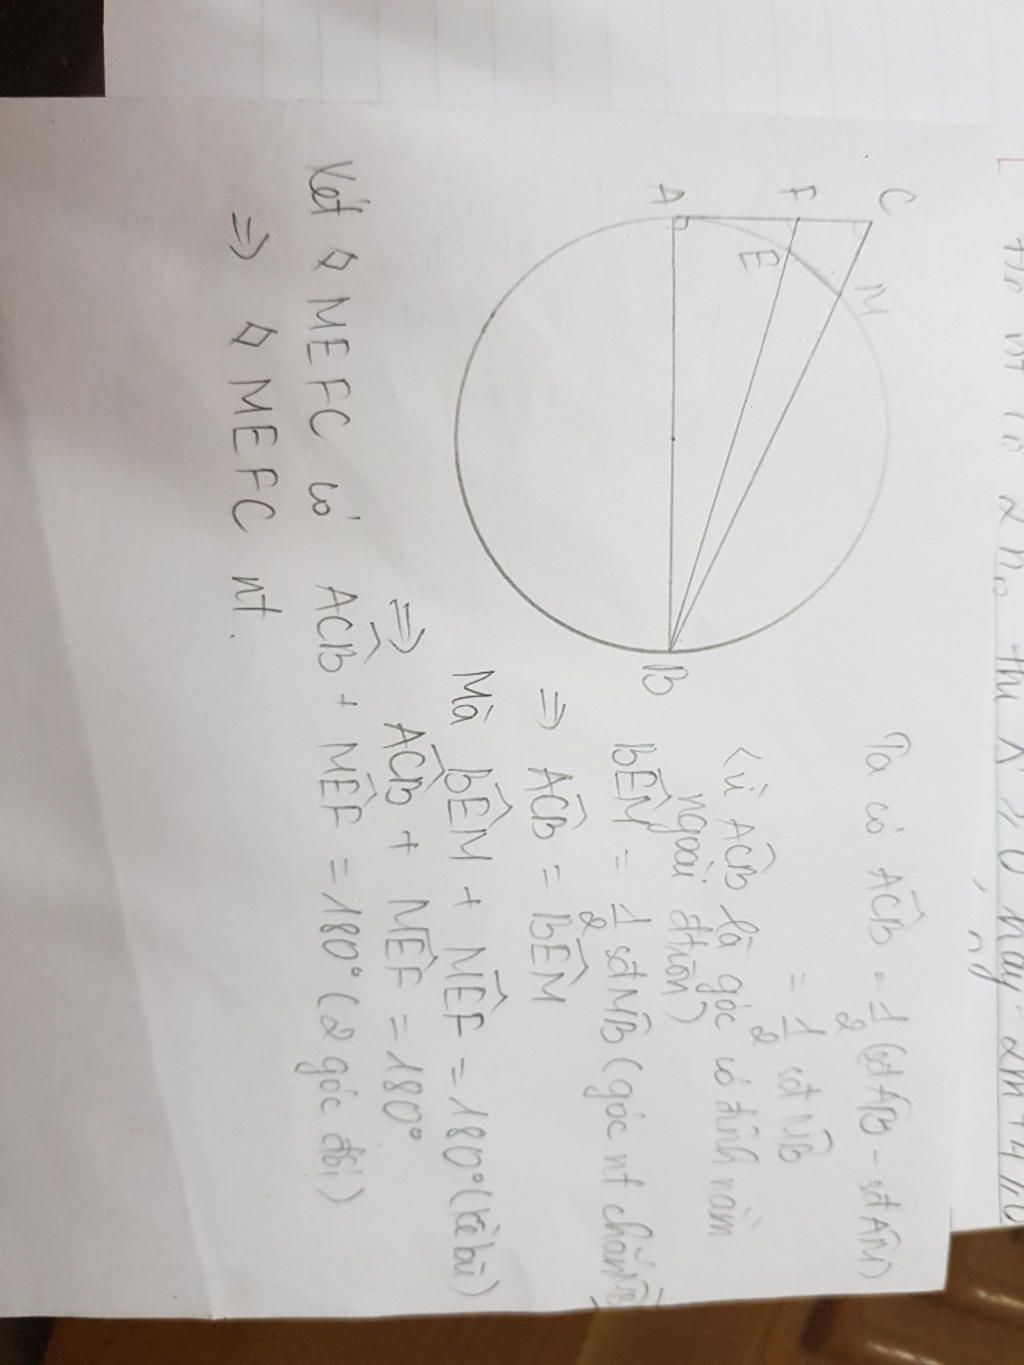 thị x ≥ 0 hay
A
F
C
E
M
B
Ta có ACB = 1/2 (sđ AB - sđ AM)
= 1/2 sđ MB
(vì ACB là góc có đỉnh nằm
ngoài đtròn)
BEM = 1/2 sđ MB (góc nt chắn MB)
=> ACB = BEM
Mà BEM + MEF = 180° (kề bù)
=> ACB + MEF = 180°
Xét ◊ MEFC có ACB + MEF = 180° (2 góc đối)
=> ◊ MEFC nt.